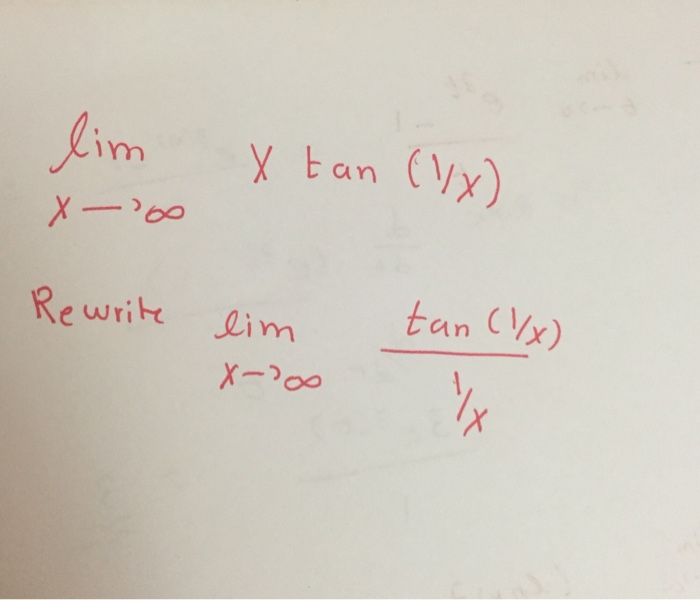 lim x tan (1/x)
x→∞
Rewrite lim tan (1/x)
x→∞ 1/x